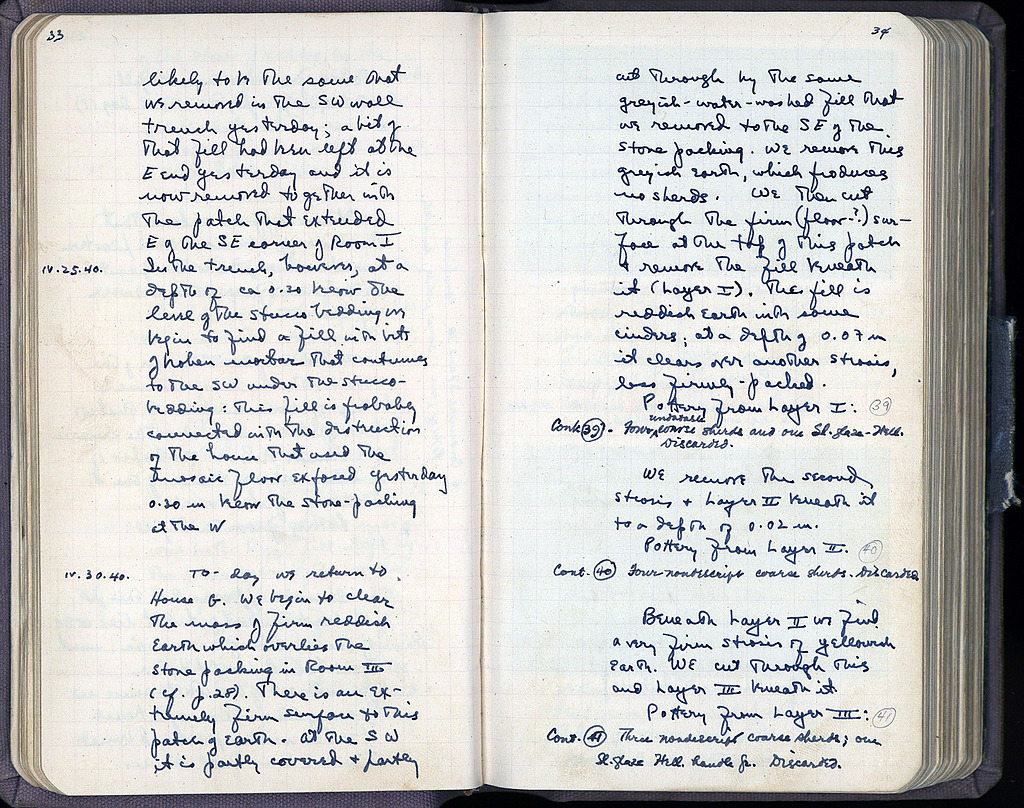 33
likely to be the same that
we removed in the SW wall
trench yesterday; a bit of
that fill had been left at the
E end yesterday and it is
now removed together with
the patch that extended
E of the SE corner of Room I
IV.25.40. In the trench, however, at a
depth of ca 0.20 below the
level of the stucco bedding we
begin to find a fill with bits
of broken mortar that continues
to the SW under the stucco-
bedding: this fill is probably
connected with the destruction
of the house that used the
mosaic floor exposed yesterday
0.20 m below the stone-packing
at the W
IV.30.40. To-day we return to
House G. We begin to clear
the mass of firm reddish
earth which overlies the
stone packing in Room III
(cf. p.28). There is an ex-
tremely firm surface to this
patch of earth. At the SW
it is partly covered + partly
34
cut through by the same
greyish-water-washed fill that
we removed to the SE of the
stone packing. We remove this
greyish earth, which produces
no sherds. We then cut
through the firm (floor-?) sur-
face at the top of this patch
+ remove the fill beneath
it (Layer I). The fill is
reddish earth with some
cinders; at a depth of 0.07 m
it clears over another strosis,
less firmly-packed.
Pottery from Layer I: 39
Cont. 39. Four undatable coarse sherds and one Sl.glaze-Hell.
Discarded.
We remove the second
strosis + Layer II beneath it
to a depth of 0.02 m.
Pottery from Layer II. 40
Cont. 40 Four nondescript coarse sherds. Discarded
Beneath Layer II we find
a very firm strosis of yellowish
earth. We cut through this
and Layer III beneath it
Pottery from Layer III: 41
Cont. 41 Three nondescript coarse sherds; one
Sl.glaze Hell. handle fr. Discarded.